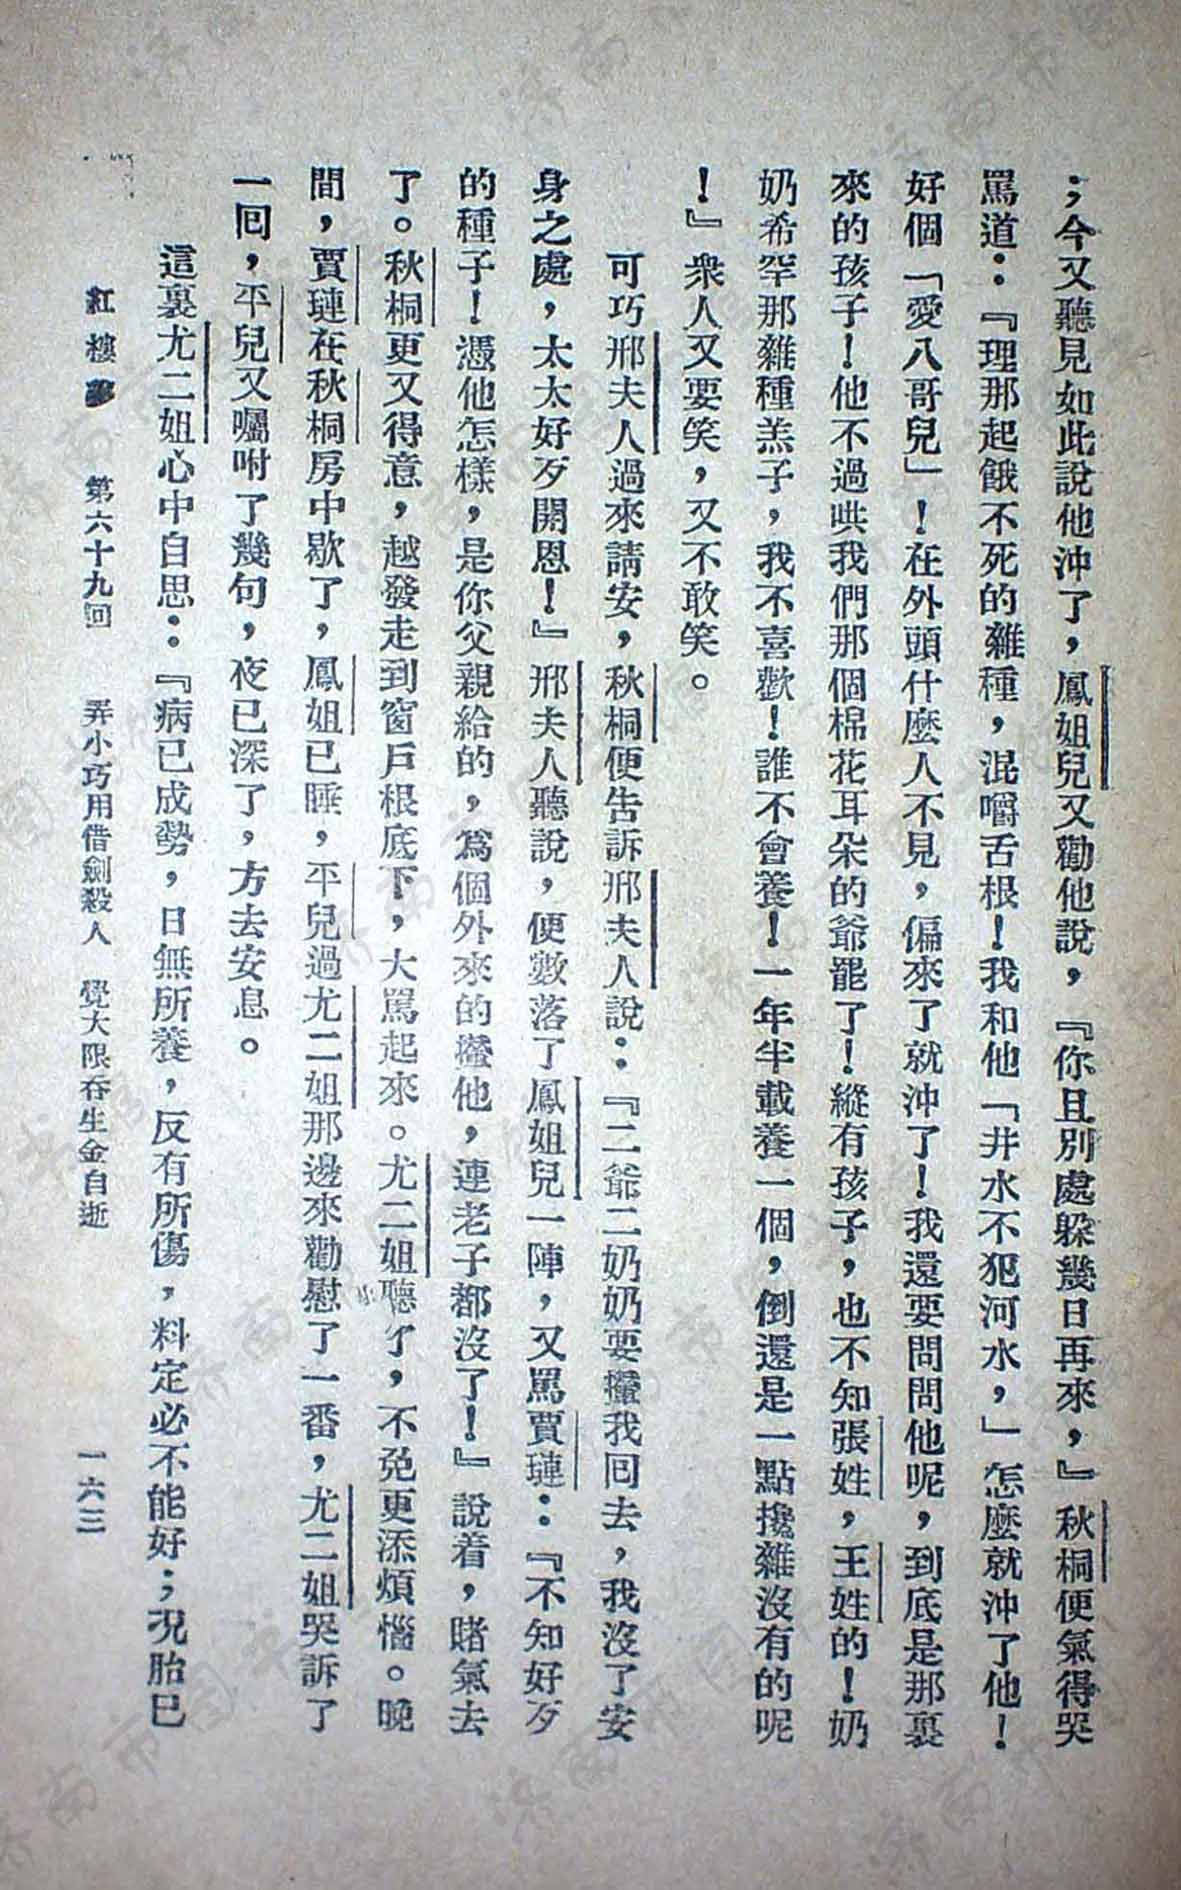 ；今又聽見如此說他沖了，鳳姐兒又勸他說，『你且別處躲幾日再來，』秋桐便氣得哭
罵道：『理那起餓不死的雜種，混嚼舌根！我和他「井水不犯河水，」怎麼就沖了他！
好個「愛八哥兒」！在外頭什麼人不見，偏來了就沖了！我還要問問他呢，到底是那裏
來的孩子！他不過哄我們那個棉花耳朵的爺罷了！縱有孩子，也不知張姓，王姓的！奶
奶希罕那雜種羔子，我不喜歡！誰不會養！一年半載養一個，倒還是一點攙雜沒有的呢
！』衆人又要笑，又不敢笑。
可巧邢夫人過來請安，秋桐便告訴邢夫人說：『二爺二奶奶要攆我回去，我沒了安
身之處，太太好歹開恩！』邢夫人聽說，便數落了鳳姐兒一陣，又罵賈璉：『不知好歹
的種子！憑他怎樣，是你父親給的，爲個外來的攆他，連老子都沒了！』說着，賭氣去
了。秋桐更又得意，越發走到窗戶根底下，大罵起來。尤二姐聽了，不免更添煩惱。晚
間，賈璉在秋桐房中歇了，鳳姐已睡，平兒過尤二姐那邊來勸慰了一番，尤二姐哭訴了
一回，平兒又囑咐了幾句，夜已深了，方去安息。
這裏尤二姐心中自思：『病已成勢，日無所養，反有所傷，料定必不能好；况胎已
紅樓夢　第六十九回　弄小巧用借劍殺人　覺大限吞生金自逝　一六三